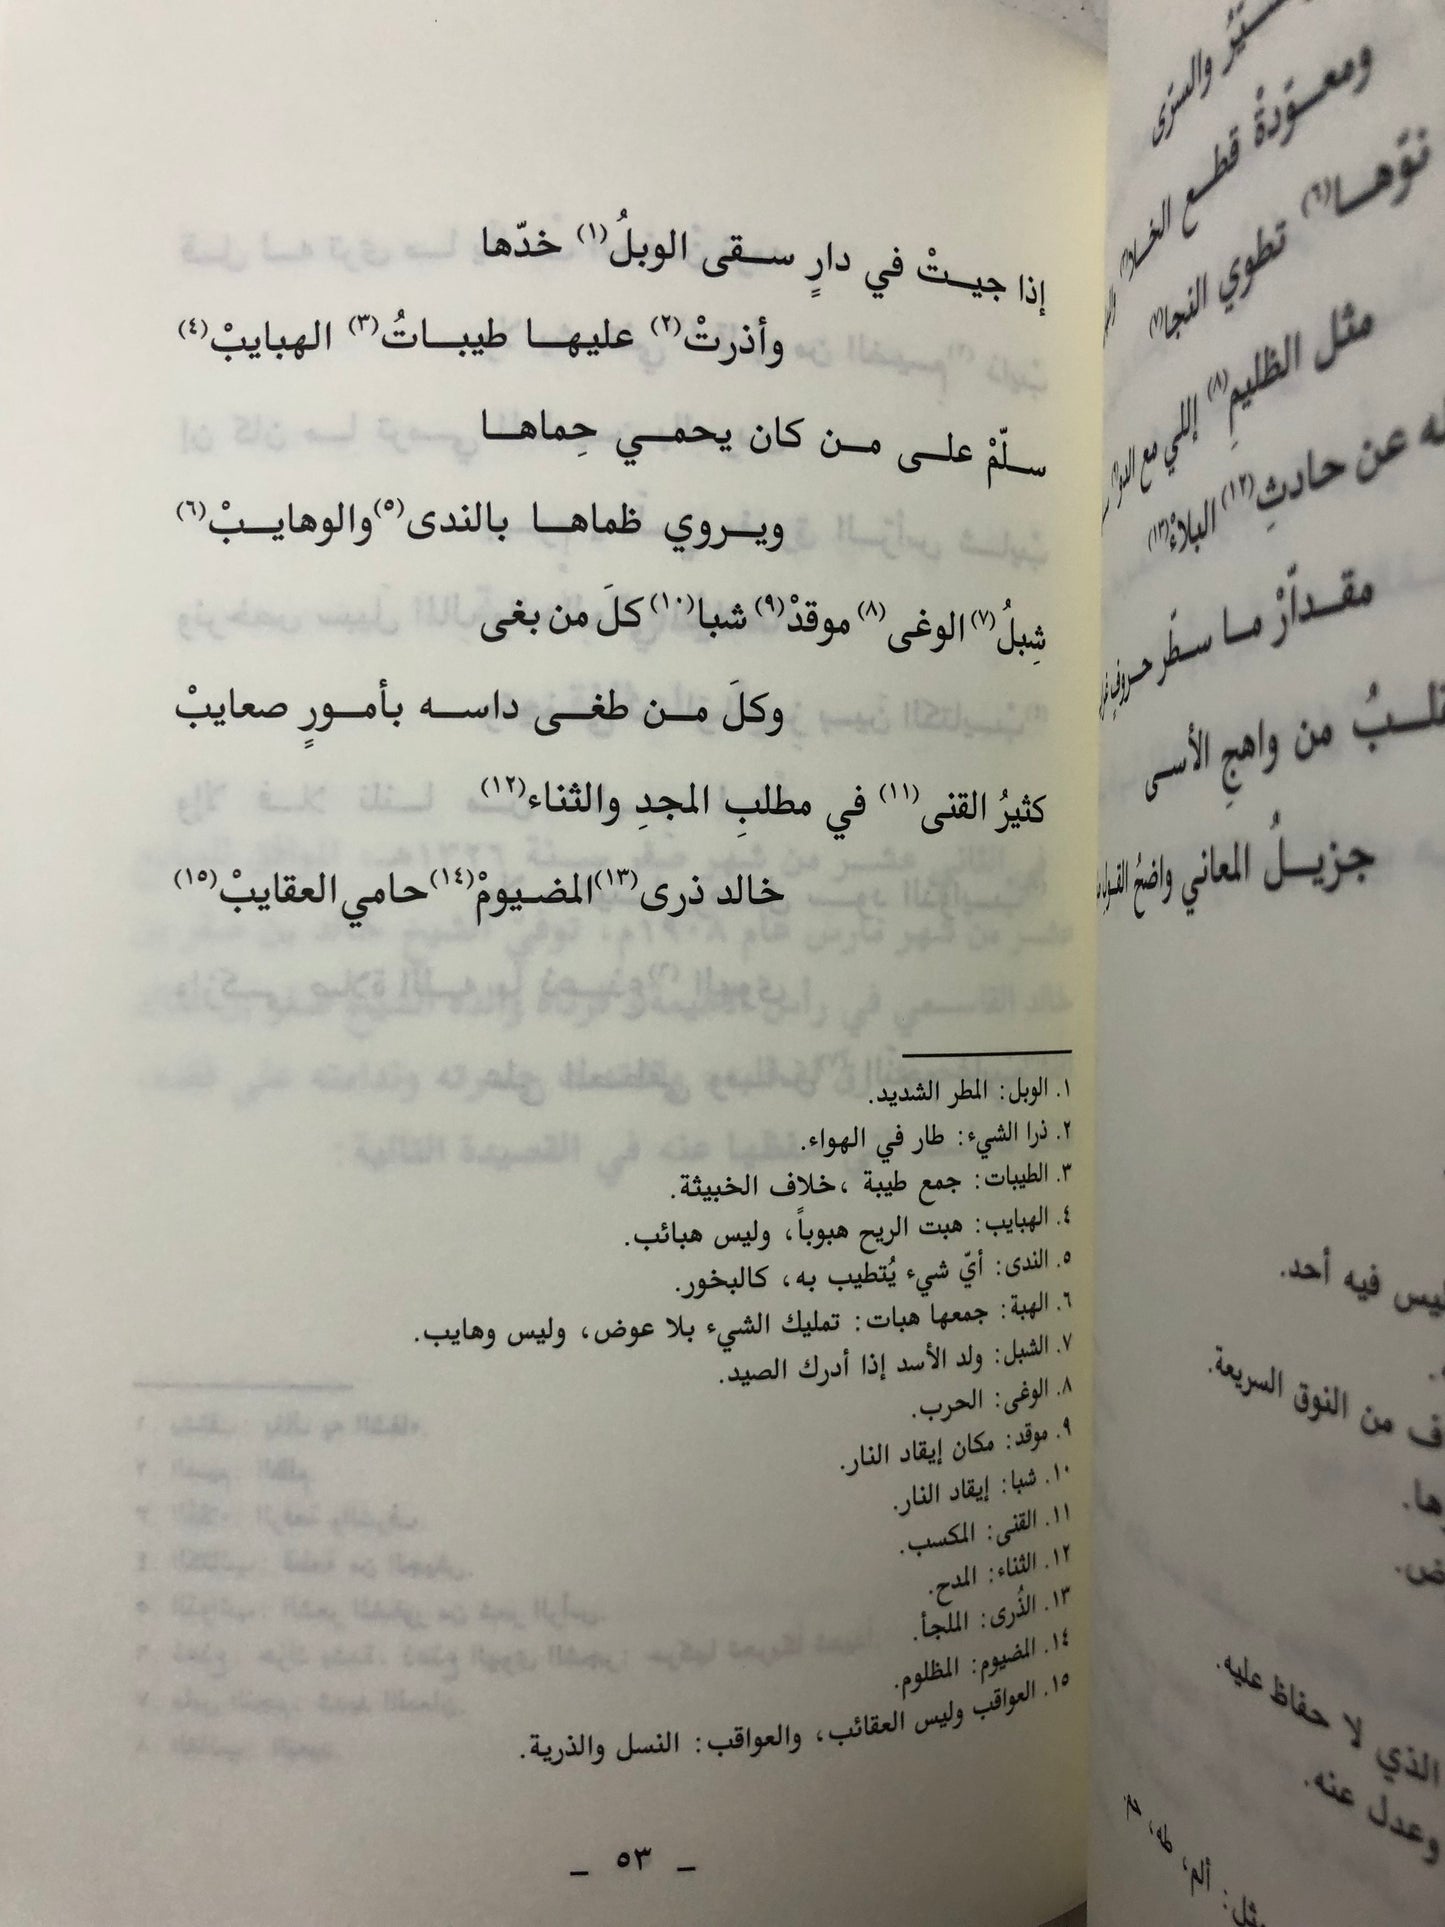 إذا جيتْ في دارٍ سقى الوبلُ(١) خدّها
وأذرتْ(٢) عليها طيباتُ(٣) الهبايبْ(٤)
سلّمْ على من كان يحمي حِماها
ويروي ظماها بالندى(٥) والوهايبْ(٦)
شِبلُ(٧) الوغى(٨) موقدْ(٩) شبا(١٠) كلَ من بغى
وكلَ من طغى داسه بأمورٍ صعايبْ
كثيرُ القنى(١١) في مطلبِ المجدِ والثناء(١٢)
خالد ذرى(١٣) المضيومْ(١٤) حامي العقايبْ(١٥)
١. الوبل: المطر الشديد.
٢. ذرا الشيء: طار في الهواء.
٣. الطيبات: جمع طيبة ،خلاف الخبيثة.
٤. الهبايب: هبت الريح هبوباً، وليس هبائب.
٥. الندى: أيّ شيء يُتطيب به، كالبخور.
٦. الهبة: جمعها هبات: تمليك الشيء بلا عوض، وليس وهايب.
٧. الشبل: ولد الأسد إذا أدرك الصيد.
٨. الوغى: الحرب.
٩. موقد: مكان إيقاد النار.
١٠. شبا: إيقاد النار.
١١. القنى: المكسب.
١٢. الثناء: المدح.
١٣. الذُرى: الملجأ.
١٤. المضيوم: المظلوم.
١٥. العواقب وليس العقائب، والعواقب: النسل والذرية.
– ٥٣ –
والسرَى
ومعوَدةْ قطع
نوّها(٦) تطوي النجا(٧)
مثل الظليمِ(٨) إللي مع
عن حادثِ(١٢) البلاءْ(١٣)
مقدارْ ما سطَر حروفٍ
من واهجِ الأسى
جزيلُ المعاني واضحُ
فيه أحد.
من النوق السريعة.
الذي لا حفاظ عليه.
وعدل عنه.